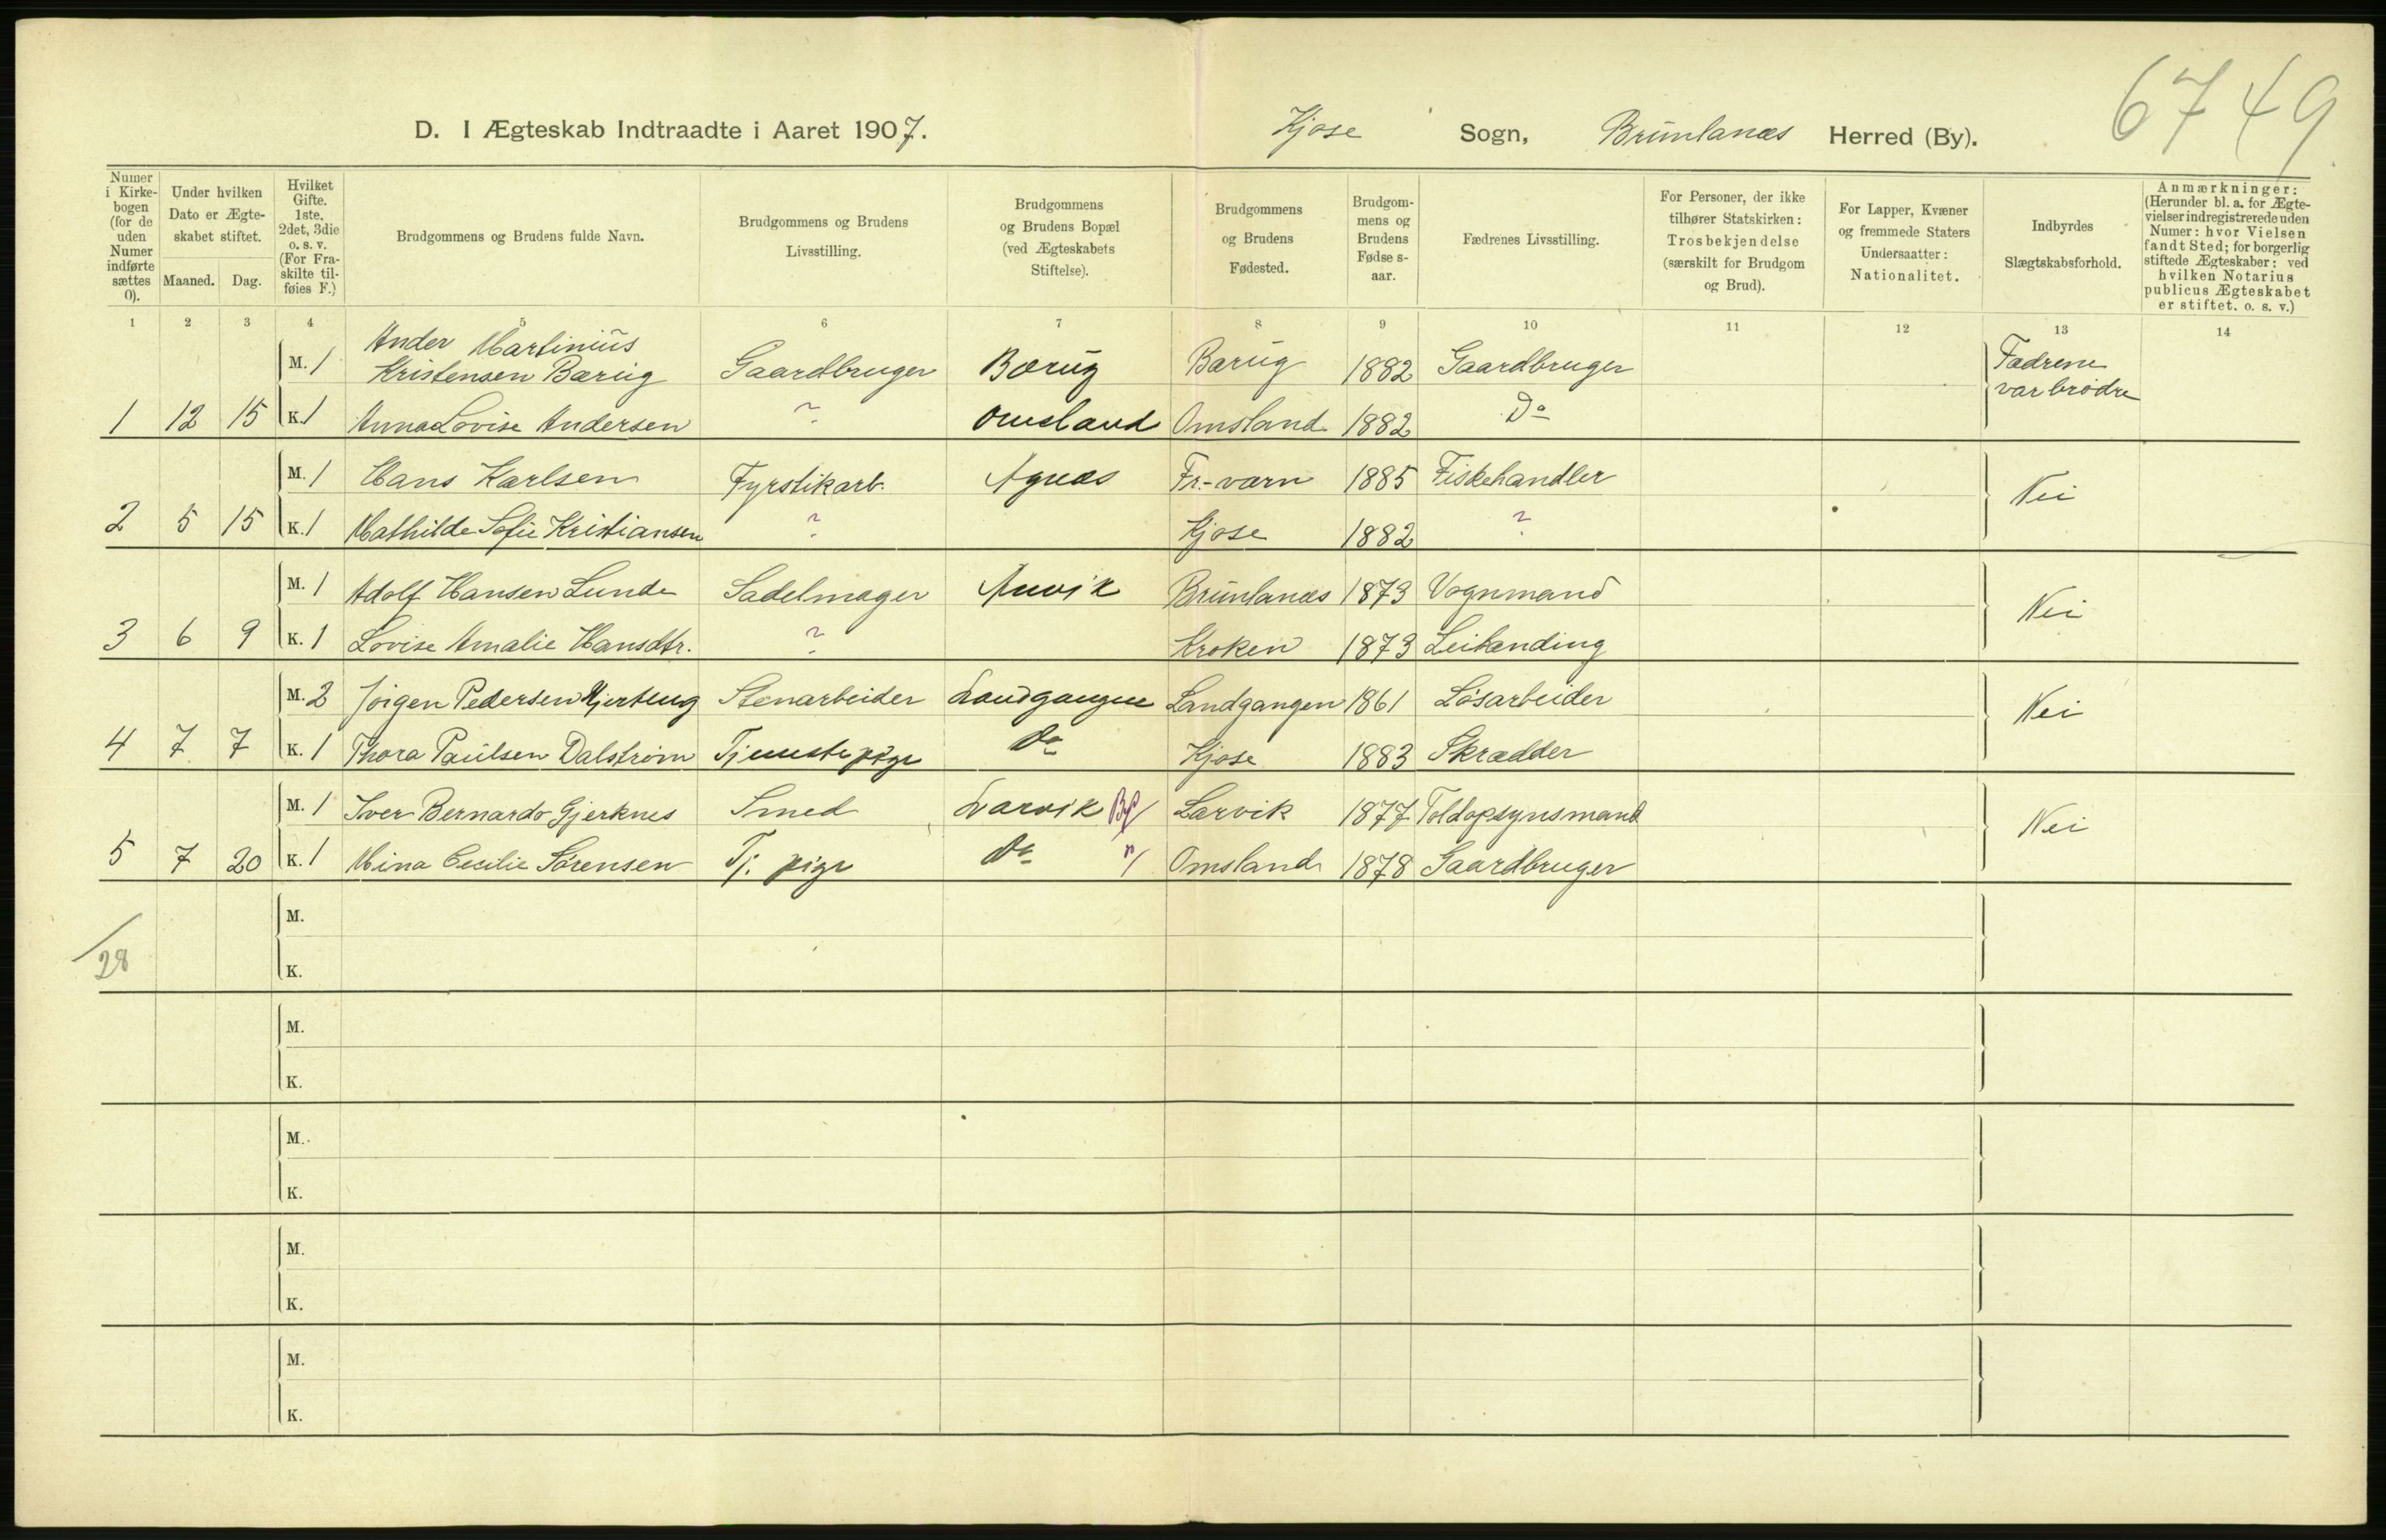 6749
D. I Ægteskab Indtraadte i Aaret 1907. Kjose Sogn, Brunlanæs Herred (By).
Numer i Kirke- bogen (for de uden Numer indførte sættes 0).
Under hvilken Dato er Ægte- skabet stiftet.
Maaned. Dag.
Hvilket Gifte. 1ste, 2det, 3die o. s. v. (For Fra- skilte til- føies F.)
Brudgommens og Brudens fulde Navn.
Brudgommens og Brudens Livsstilling.
Brudgommens og Brudens Bopæl (ved Ægteskabets Stiftelse).
Brudgommens og Brudens Fødested.
Brudgom- mens og Brudens Fødse s- aar.
Fædrenes Livsstilling.
For Personer, der ikke tilhører Statskirken: Trosbekjendelse (særskilt for Brudgom og Brud).
For Lapper, Kvæner og fremmede Staters Undersaatter: Nationalitet.
Indbyrdes Slægtskabsforhold.
Anmærkninger: (Herunder bl. a. for Ægte- vielser indregistrerede uden Numer: hvor Vielsen fandt Sted; for borgerlig stiftede Ægteskaber: ved hvilken Notarius publicus Ægteskabet er stiftet. o. s. v.)
1 2 3 4 5 6 7 8 9 10 11 12 13 14
Ander Martinius
M. 1 Kristensen Bærug Gaardbruger Bærug Bærug 1882 Gaardbruger Fædrene
var brødre
1 12 15 K. 1 Anna Lovise Andersen ? Omsland Omsland 1882 Do
M. 1 Hans Karlsen Fyrstikarb. Agnæs Fr.-værn 1885 Fiskehandler Nei
2 5 15 K. 1 Mathilde Sofie Kristiansen ? Kjose 1882 ?
M. 1 Adolf Hansen Lunde Sadelmager Anvik Brunlanæs 1873 Vognmand Nei
3 6 9 K. 1 Lovise Amalie Hansdtr. ? Kroken 1873 Leilænding
M. 2 Jørgen Pedersen Landgangen Stenarbeider Landgangen 1861 Løsarbeider Nei
4 7 7 K. 1 Thora Paulsen Dalstrøm Tjenestepige Do Kjose 1883 Skrædder
M. 1 Iver Bernardo Gjerknes Smed Larvik By Larvik 1877 Toldopsynsmand Nei
5 7 20 K. 1 Mina Cecilie Sørensen Tj. pige Do " Omsland 1878 Gaardbruger
M.
/28
K.
M.
K.
M.
K.
M.
K.
M.
K.